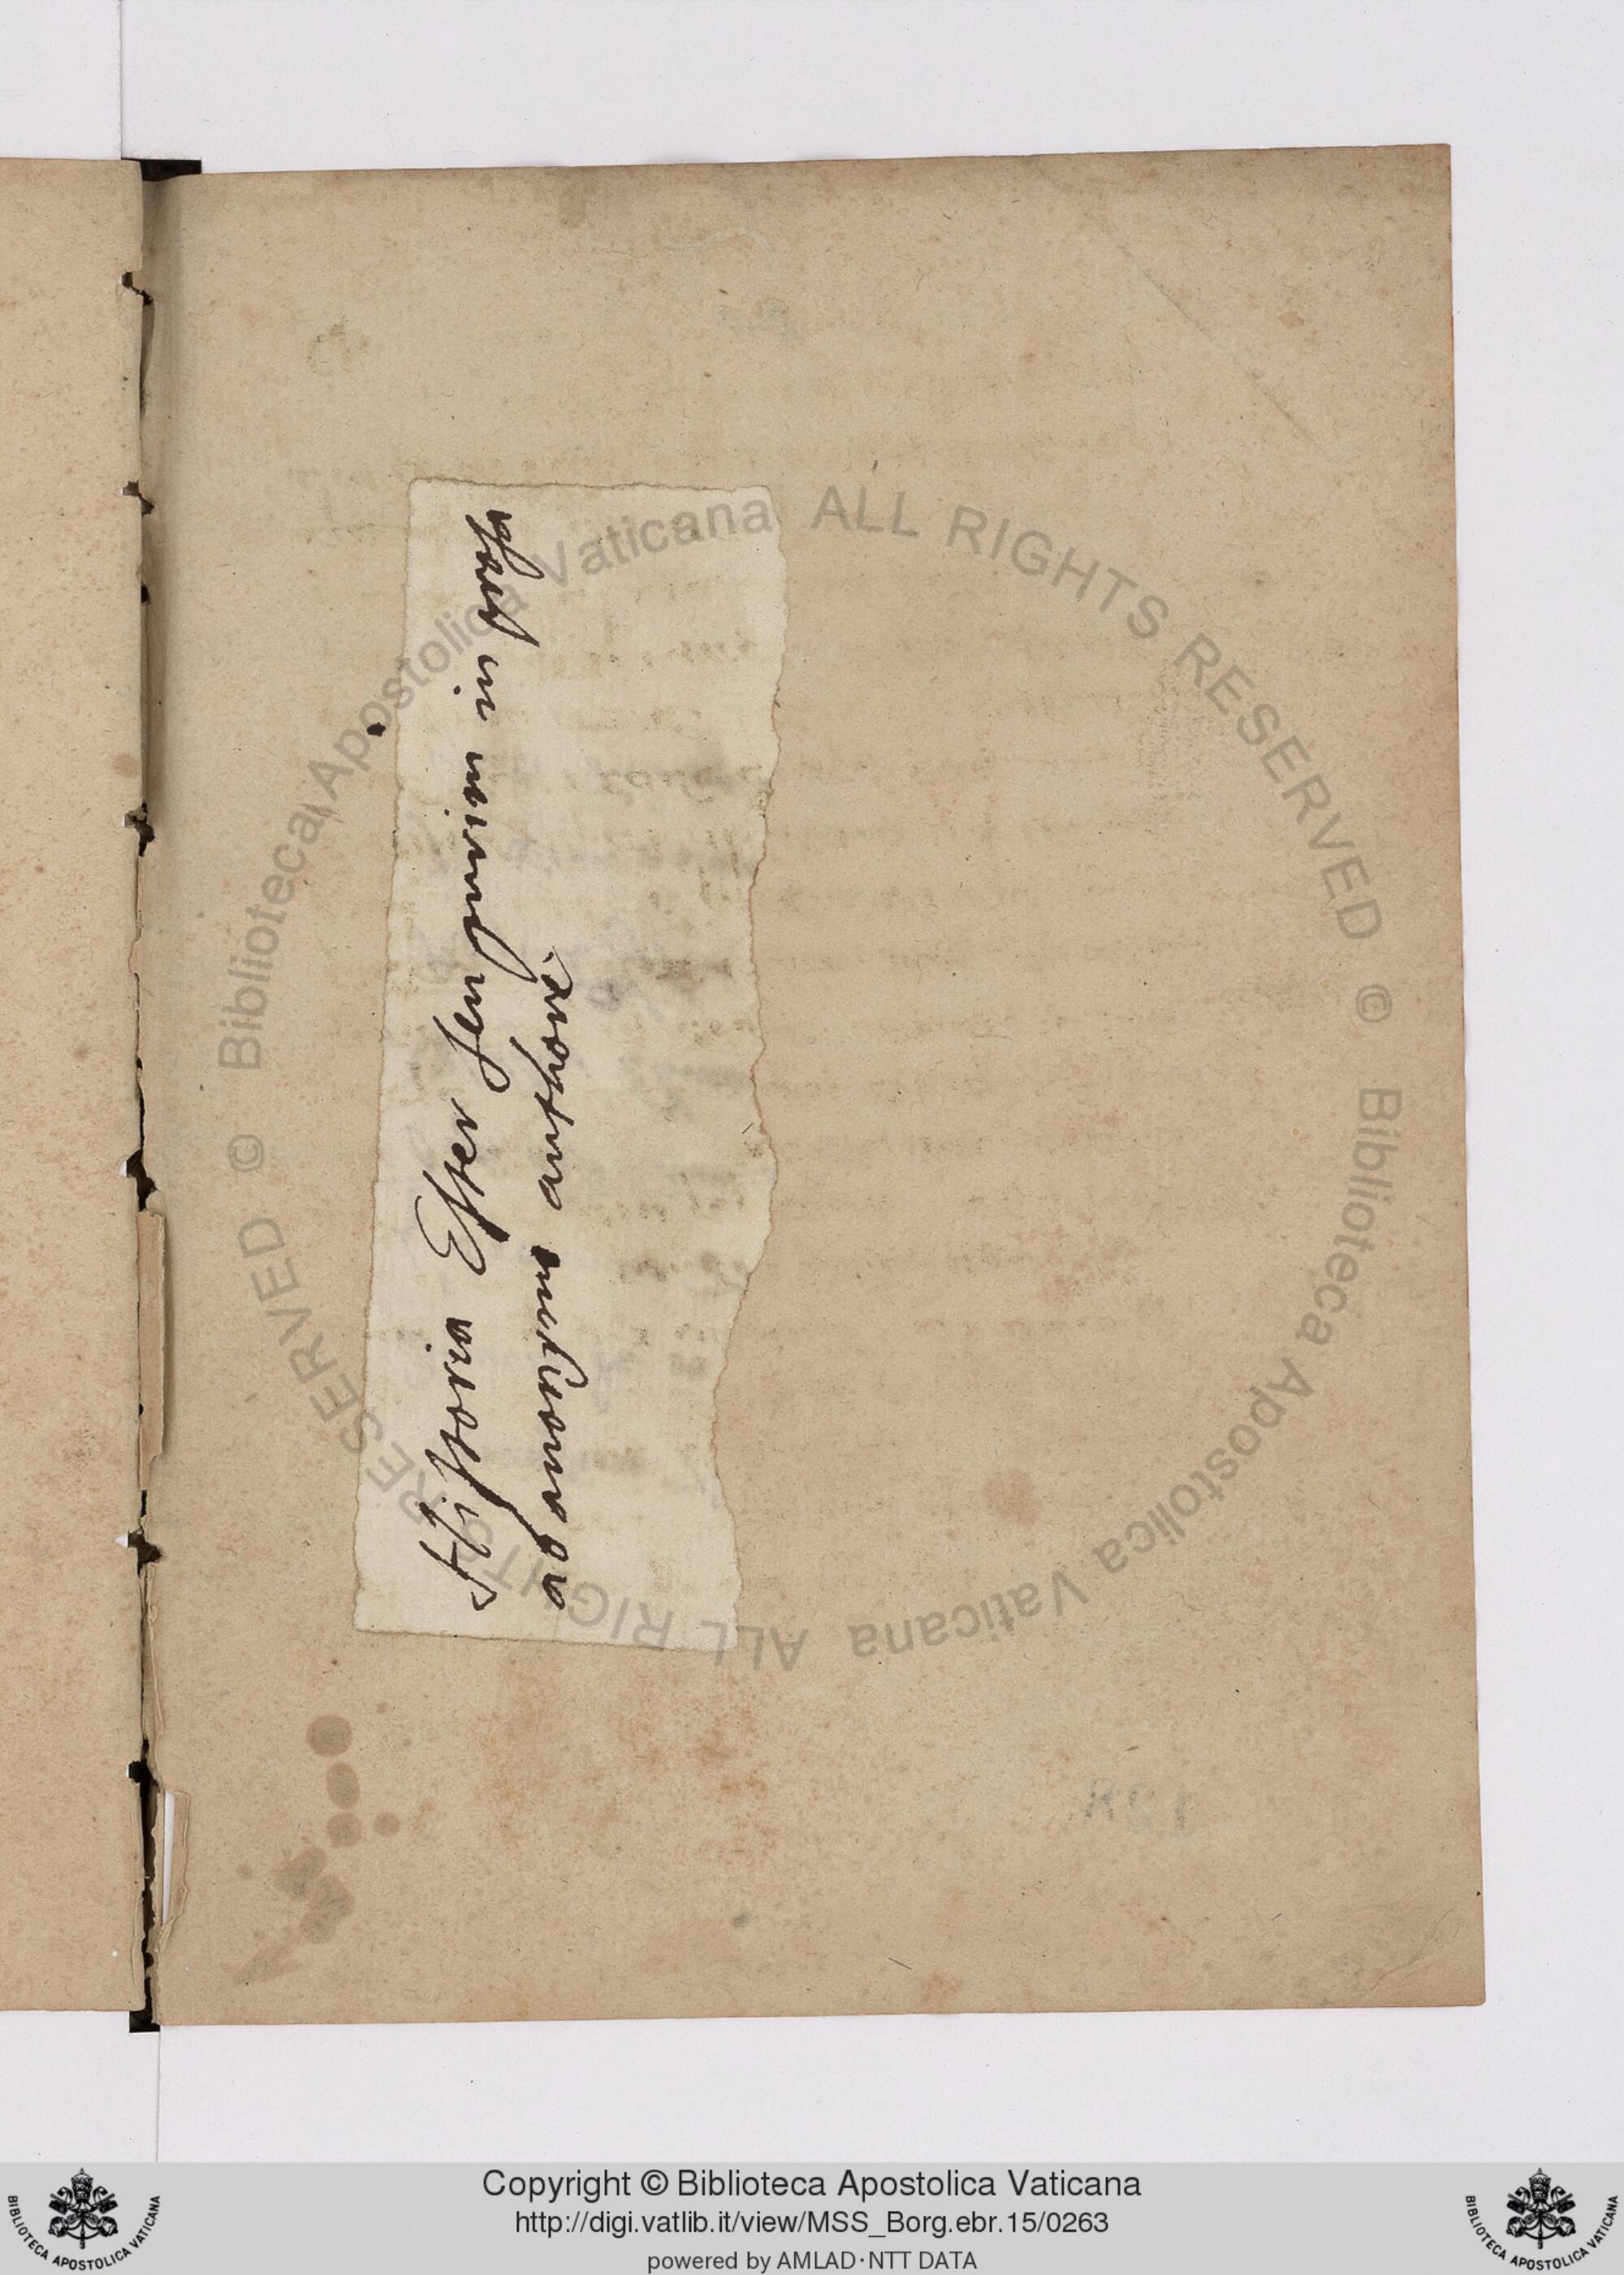 Historia Ester seu purim in prosa
ab anonymo authore
© Biblioteca Apostolica Vaticana ALL RIGHTS RESERVED © Biblioteca Apostolica Vaticana ALL RIGHTS RESERVED
Copyright © Biblioteca Apostolica Vaticana
http://digi.vatlib.it/view/MSS_Borg.ebr.15/0263
powered by AMLAD·NTT DATA
BIBLIOTECA APOSTOLICA VATICANA
BIBLIOTECA APOSTOLICA VATICANA